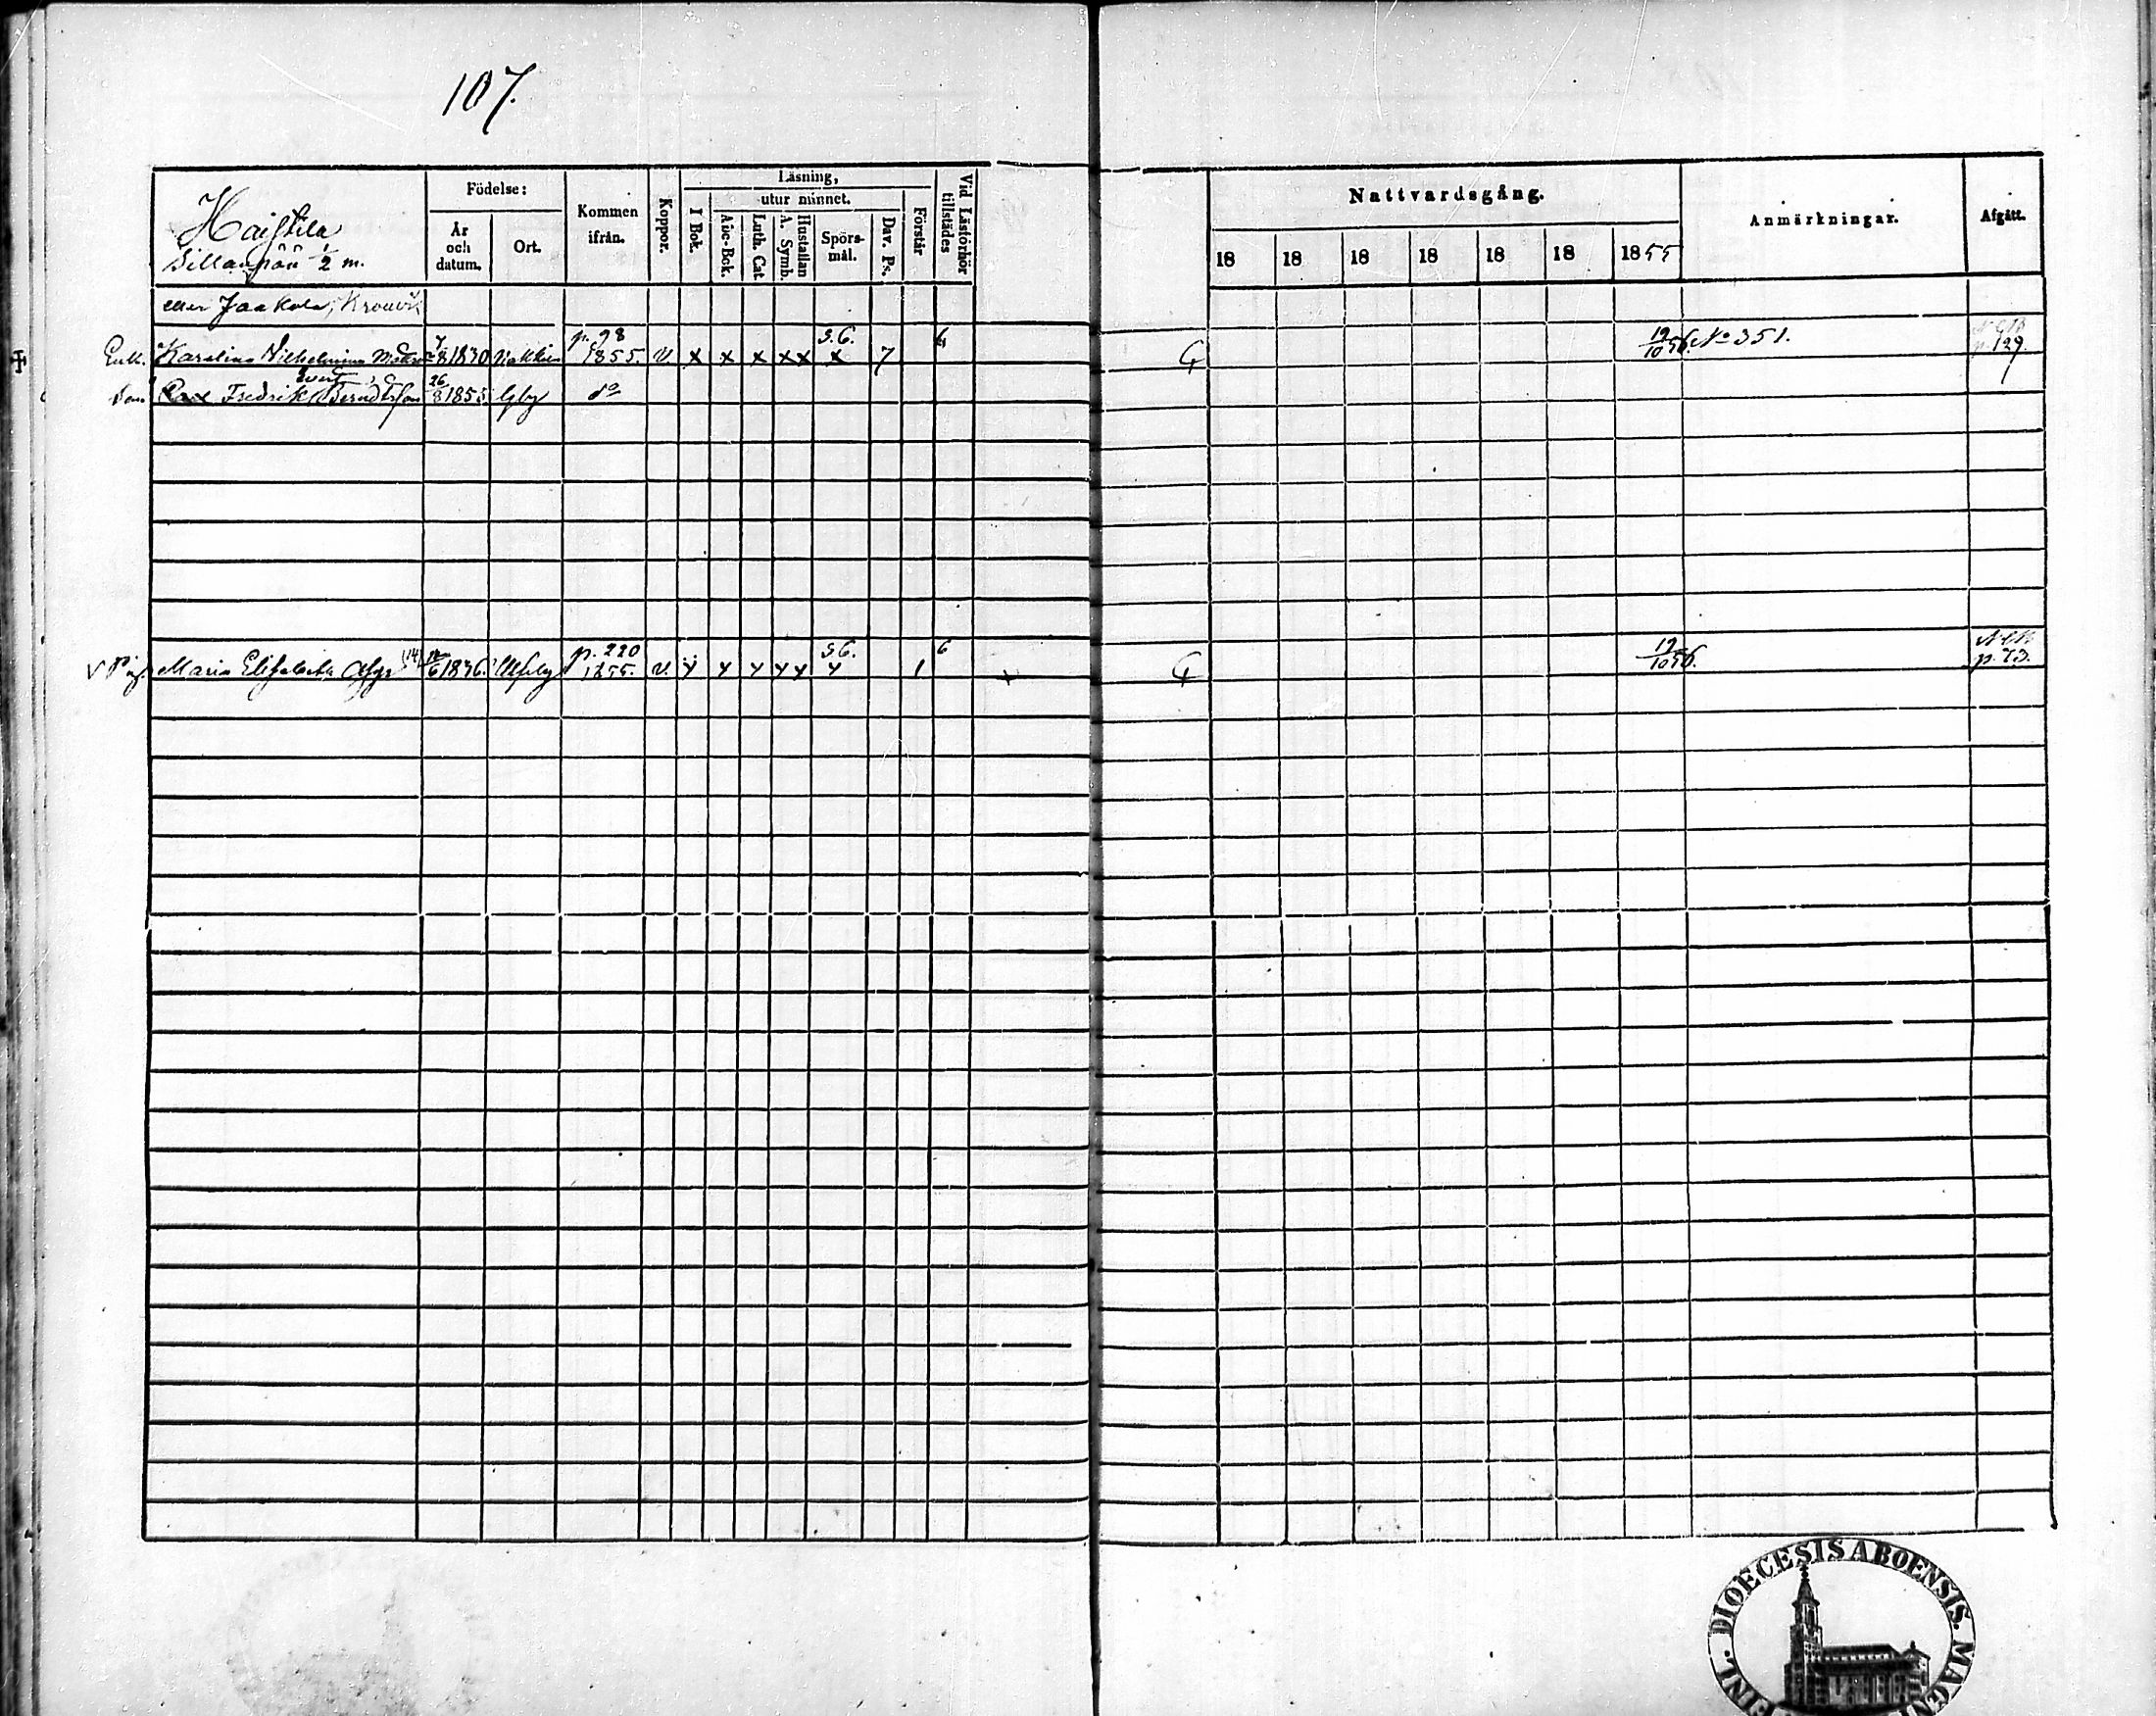 107.
Födelse: Kommen ifrån. Koppor. Läsning, Vid Läsförhör tillstädes Nattvardsgång. Anmärkningar. Afgått.
År och datum. Ort. I Bok. utur minnet. Förstår
Abc-Bok. Luth. Cat. A. Symb. Hustaflan Spörsmål. Dav. Ps.
18 18 18 18 18 18 1855
Haistila
Sillanpää 1/2 m.
eller Jaakola,
p. 98 S.6. 6
Enk. Karolina Wilhelmina 7/8 1830 1855. v. x x x x x x 7 19/10 56. No 351. p. 129
Evert
Fredrik Berndtsson 26/8 1855 do
p. 220 S6. 6
v Pig. Maria Elisabeta (14) 12/6 1836. Ulfsby 1855. v. y y y y y y 1 + 19/10 56. p. 73.
FINL. DIOECESIS ABOENSIS. MAGN